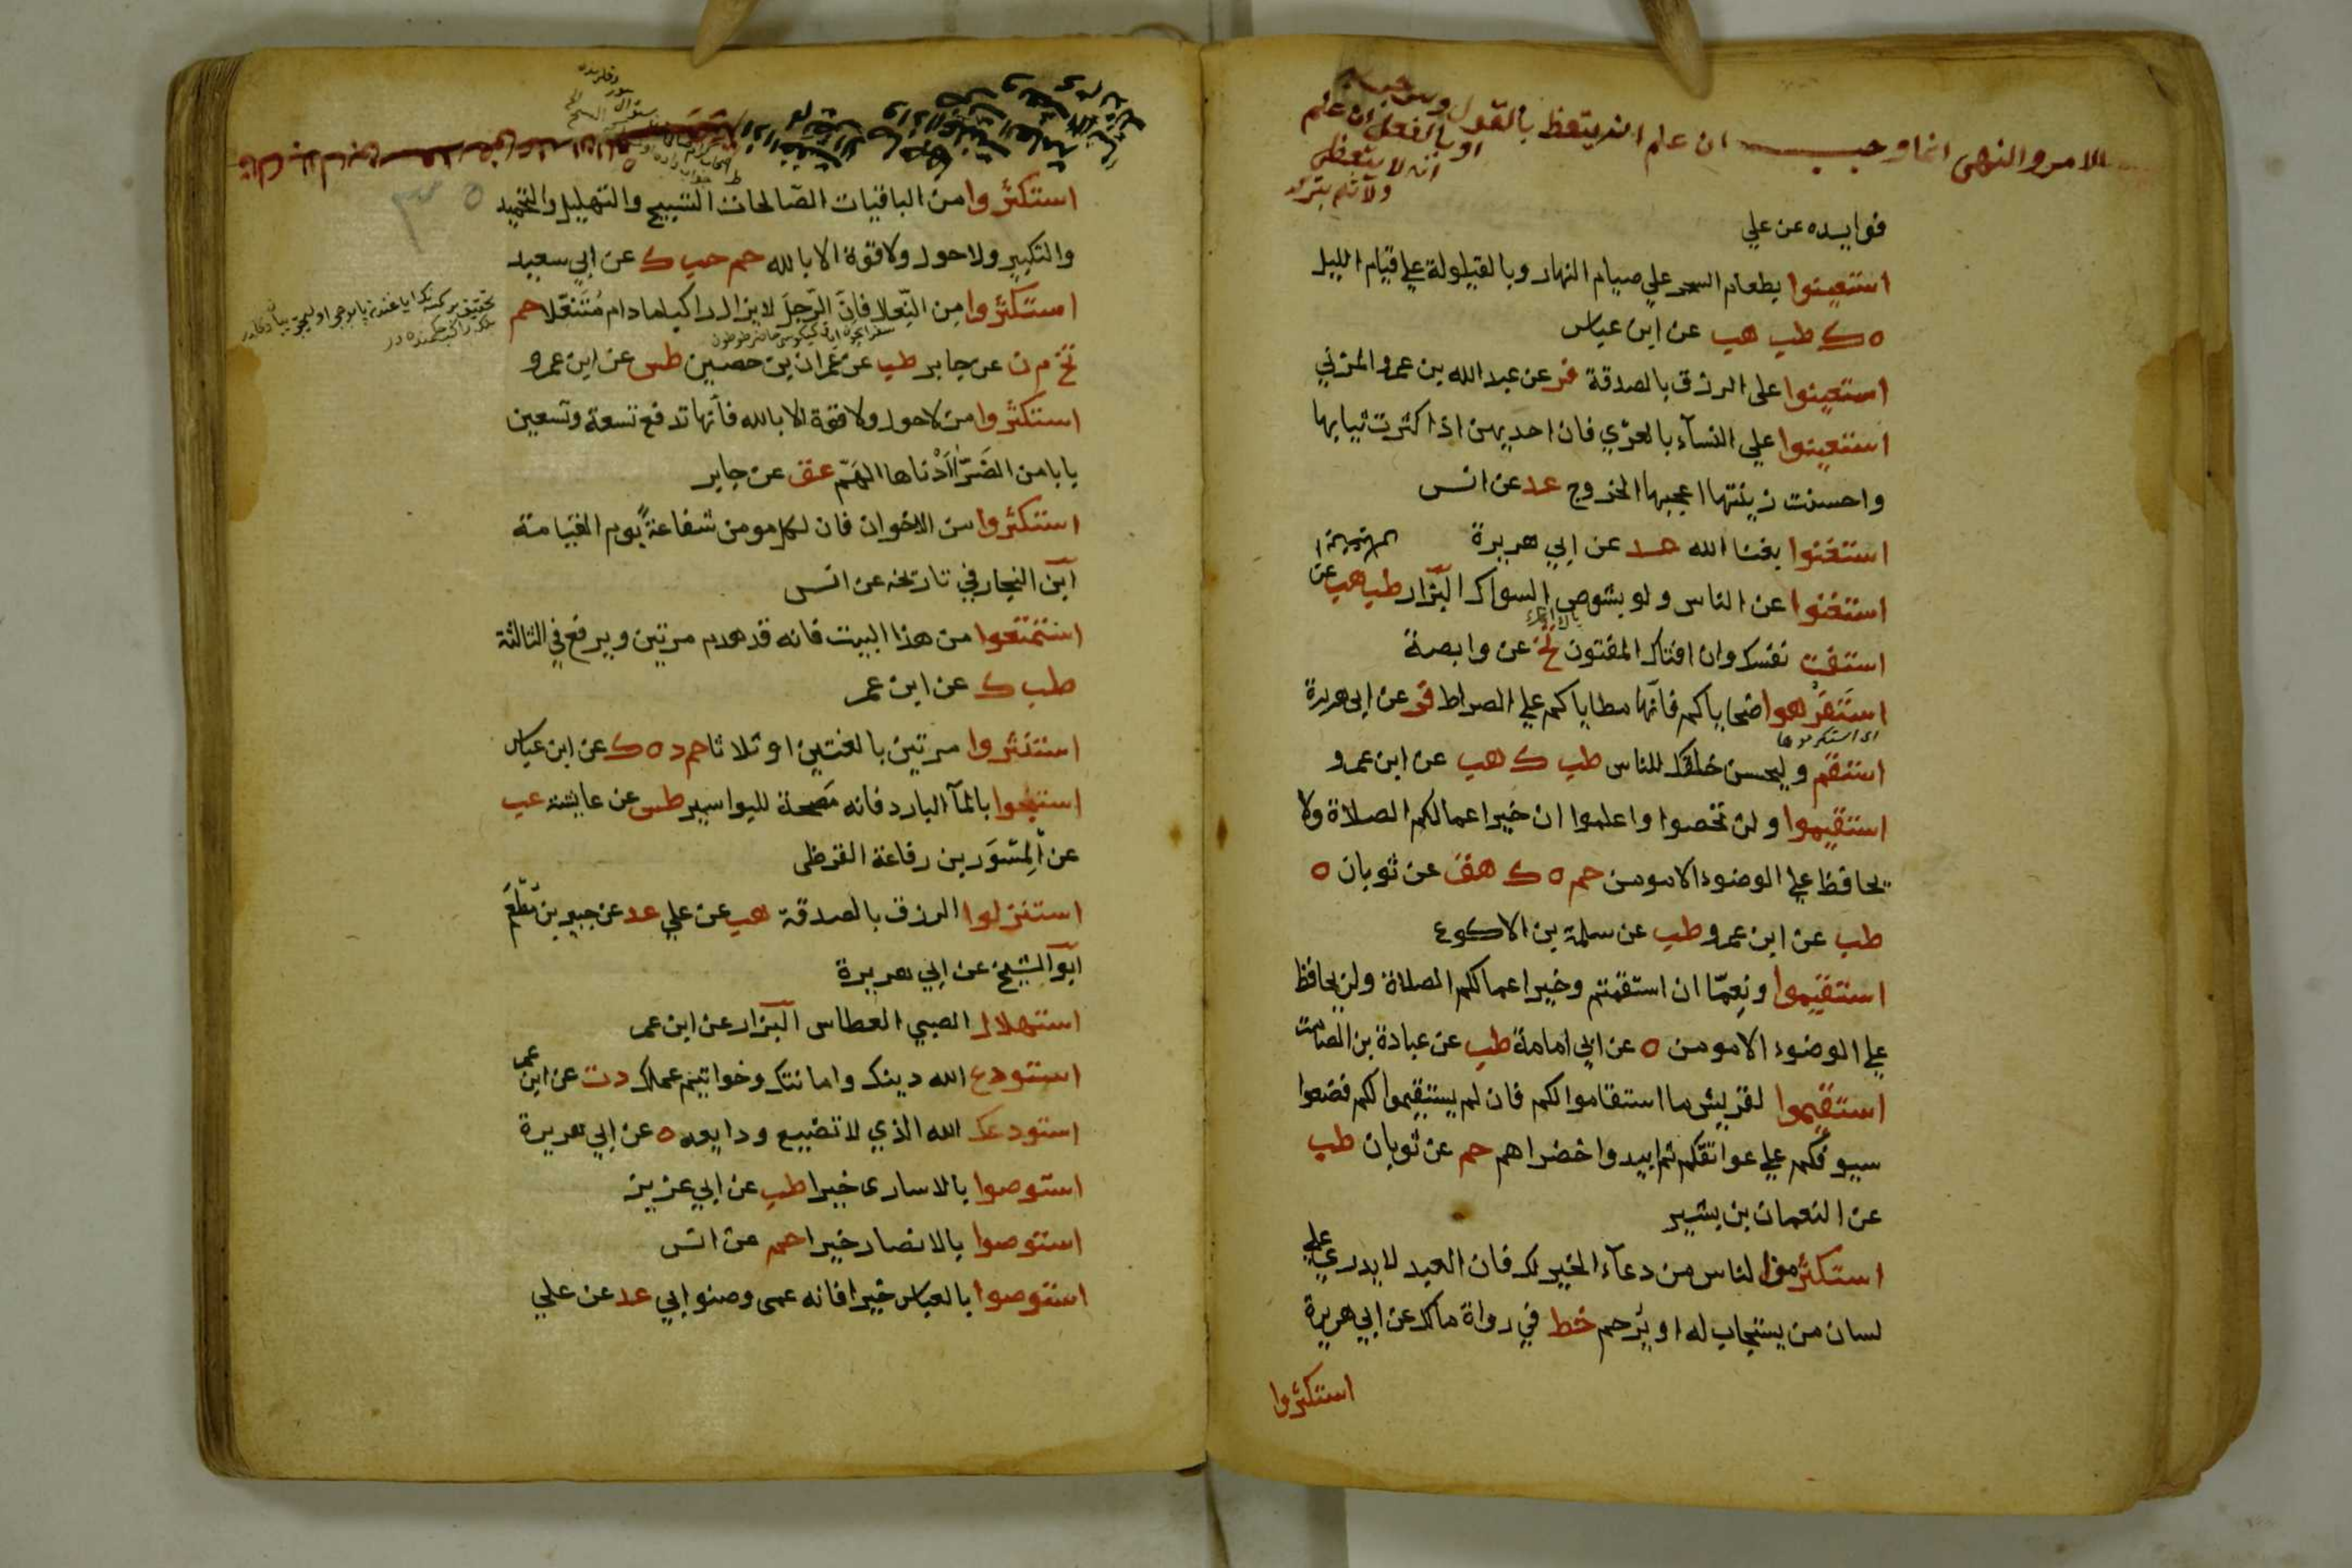 الامر والنهى انما وجب ان علم انه يتعظ بالقول
او بالفعل ان علم
انه لا يتعظ
فوايده عن علي
استعينوا بطعام السحر علي صيام النهار وبالقيلولة علي قيام الليل
ه ك طب هب عن ابن عباس
استعينوا على الرزق بالصدقة فر عن عبد الله بن عمرو المزني
استعينوا علي النسآء بالعرْي فان احديهن اذا كثرت ثيابها
واحسنت زينتها اعجبها الخروج عد عن انس
استغنوا بغنا الله عد عن ابي هريرة
استغنوا عن الناس ولو بشوص السواك البزار طب هب عن
استفت نفسك وان افتاك المفتون تخ عن وابصة
استَفرهوا ضحاياكم فانها مطاياكم علي الصراط فر عن ابي هريرة
اى استكرموها
استقم وليحسن خلقك للناس طب ك هب عن ابن عمرو
استقيموا ولن تحصوا واعلموا ان خير اعمالكم الصلاة ولا
يحافظ علي الوضوء الا مومن حم ه ك هق عن ثوبان ه
طب عن ابن عمرو طب عن سلمة بن الاكوع
استقيموا ونِعِمّا ان استقمتم وخير اعمالكم الصلاة ولن يحافظ
علي الوضوء الا مومن ه عن ابي امامة طب عن عبادة بن الصامت
استقيموا لقريش ما استقاموا لكم فان لم يستقيموا لكم فضعوا
سيوفكم علي عواتقكم ثم ابيدوا خضراهم حم عن ثوبان طب
عن النعمان بن بشير
استكثر من الناس من دعآء الخير لك فان العبد لا يدري علي
لسان من يستجاب له او يرحم خط في رواة مالك عن ابي هريرة
استكثروا
استكثروا من الباقيات الصالحات التسبيح والتهليل والتحميد
والتكبير ولا حول ولا قوة الا بالله حم حب ك عن ابي سعيد
استكثروا مِن النّعل فانّ الرّجلَ لا يزال راكبا ما دام مُتَنعّلا حم
تخ م ن عن جابر طب عن عمران بن حصين طس عن ابن عمرو
استكثروا من لا حول ولا قوة الا بالله فانها تدفع تسعة وتسعين
بابا من الضَرّ اَدْناها الهَمّ عق عن جابر
استكثروا من الاخوان فان لكل مومن شفاعةً يوم القيامة
ابن النجار في تاريخه عن انس
استمتعوا من هذا البيت فانه قد هدم مرتين ويرفع في الثالثة
طب ك عن ابن عمر
استنثروا مرتين بالغتين او ثلاثا حم د ه ك عن ابن عباس
استنجوا بالمآ البارد فانه مَصحة للبواسير طس عن عايشة عب
عن المِسْوَر بن رفاعة القرظى
استنزلوا الرزق بالصدقة هب عن علي عد عن جبير بن مطعم
ابو الشيخ عن ابي هريرة
استهلال الصبي العطاس البزار عن ابن عمر
استودع الله دينك وامانتك وخواتيم عملك د ت عن ابن عمر
استودعك الله الذي لا تضيع ودايعه ه عن ابي هريرة
استوصوا بالاسارى خيرا طب عن ابي عزيز
استوصوا بالانصار خيرا حم عن انس
استوصوا بالعباس خيرا فانه عمى وصنو ابي عد عن علي